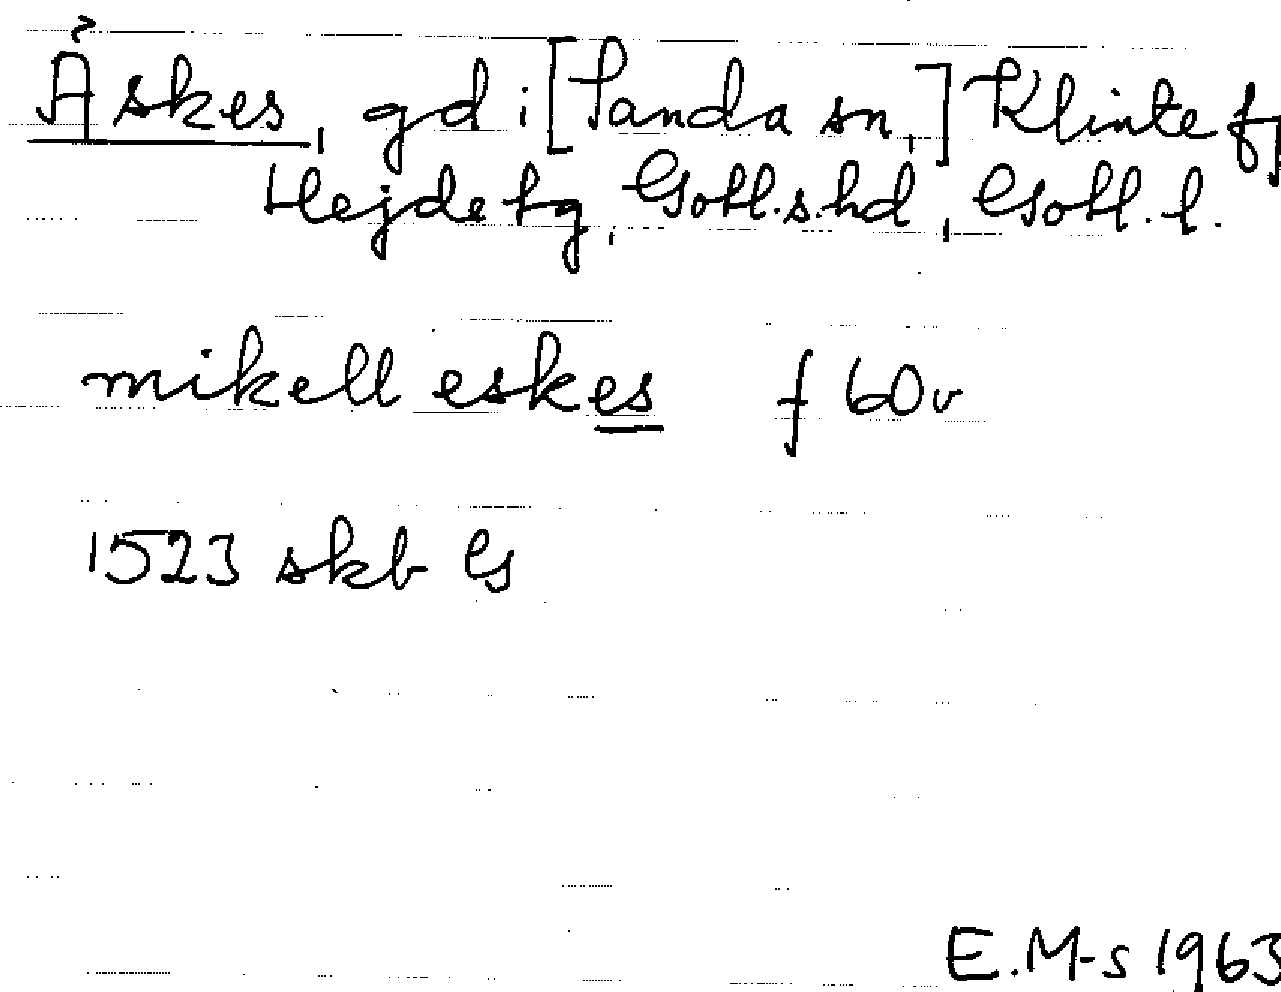 Äskes, gd i [Sanda sn,] Klinte fj
Hejde tg, Gotl.s.hd, Gotl. l.
mikell eskes f 60v
1523 skb G
E.M-s 1963